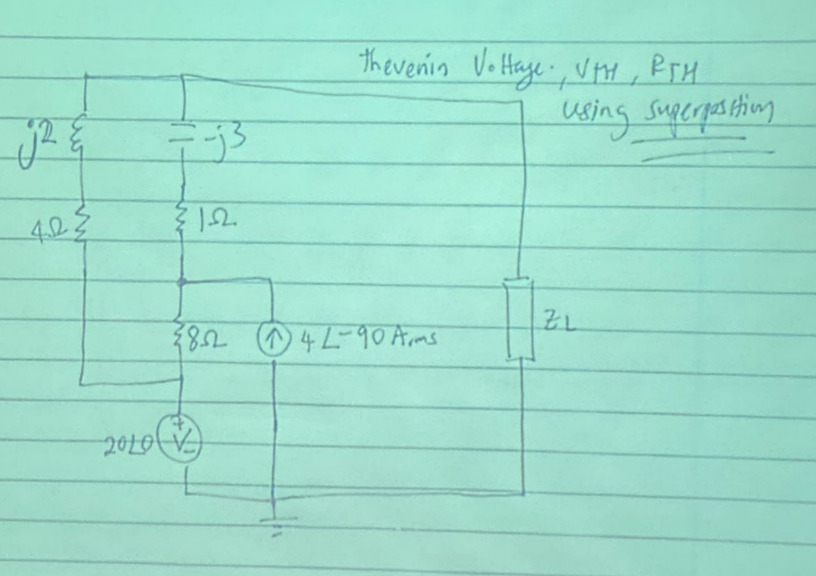 thevenin Voltage., VTH, RTH
using superposition
j2
-j3
4Ω
1Ω
8Ω
4∠-90 Arms
ZL
20∠0
+
V
-